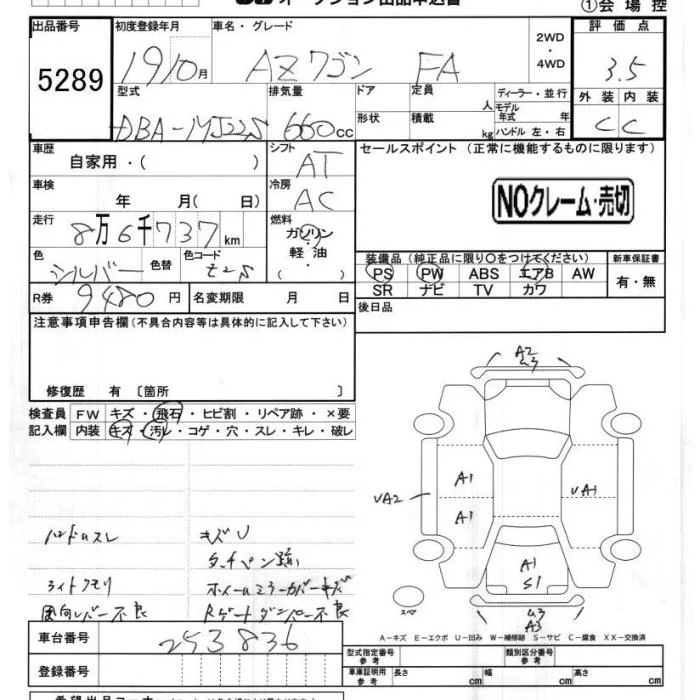 オークション出品申込書
①会場控
出品番号 5289
初度登録年月 19/10月
車名・グレード AZワゴン FA
2WD・4WD
評価点 3.5
外装 C 内装 C
型式 DBA-MJ22S
排気量 660cc
ドア 形状
定員 人
積載 kg
ディーラー・並行
モデル年式 年
ハンドル 左・右
車歴 自家用・( )
シフト AT
セールスポイント (正常に機能するものに限ります)
NOクレーム・売切
車検 年 月( 日)
冷房 AC
走行 8万6千737km
燃料 ガソリン・軽油・
色 シルバー 色替 色コード Z2S
装備品 (純正品に限り○をつけてください) 新車保証書
PS PW ABS エアB AW 有・無
SR ナビ TV カワ
R券 9480円 名変期限 月 日
後日品
注意事項申告欄(不具合内容等は具体的に記入して下さい)
修復歴 有 〔箇所 〕
検査員記入欄
FW キズ・飛石・ヒビ割・リペア跡・×要
内装 キズ・汚レ・コゲ・穴・スレ・キレ・破レ
A2
A1
UA2
UA1
A1
A1
S1
A3
スペア
ハンドルスレ キズU
タッチペン跡
ライトクモリ ホイールミラーカバーキズ
風向レバー不良 Rゲートダンパー不良
A-キズ E-エクボ U-凹み W-補修跡 S-サビ C-腐食 XX-交換済
車台番号 253836
登録番号
型式指定番号 参考 類別区分番号 参考
車庫証明用 参考 長さ cm 幅 cm 高さ cm